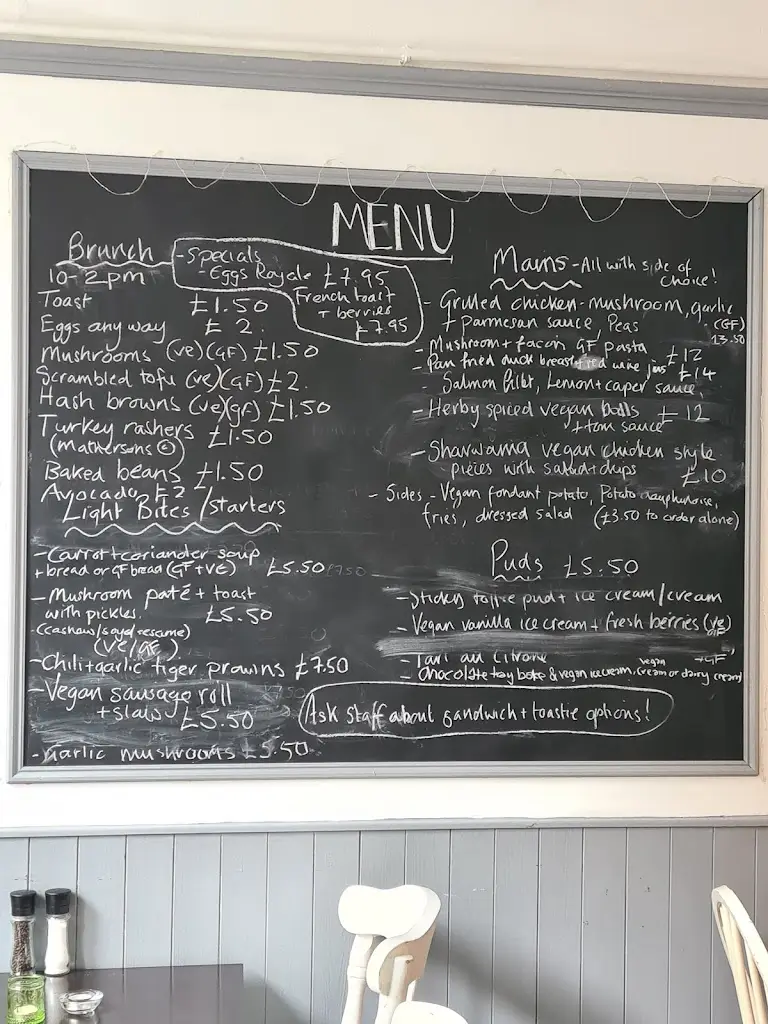 MENU
Brunch
10-2pm
- Specials
- Eggs Royale £7.95
French toast
+ berries
£7.95
Toast £1.50
Eggs any way £2.
Mushrooms (ve)(GF) £1.50
Scrambled tofu (ve)(GF) £2.
Hash browns (ve)(gf) £1.50
Turkey rashers £1.50
(mathersons ©)
Baked beans £1.50
Avocado £2
Light Bites/starters
- Carrot + coriander soup
+ bread or GF bread (GF + VE) £5.50
- Mushroom paté + toast
with pickles. £5.50
(cashew/soya/sesame)
(VE/GF)
- Chili + garlic tiger prawns £7.50
- Vegan sausage roll
+ slaw £5.50
- Garlic mushrooms £5.50
Mains - All with side of
choice!
- Grilled chicken - mushroom, garlic
+ parmesan sauce, Peas (GF)
13.50
- Mushroom + facon GF pasta £12
- Pan fried duck breast + red wine jus £14
- Salmon fillet, Lemon + caper sauce,
- Herby spiced vegan balls £12
+ tom sauce
- Shawarma vegan chicken style
pieces with salad + dips £10
- Sides - Vegan fondant potato, Potato dauphinoise,
fries, dressed salad (£3.50 to order alone)
Puds £5.50
- Sticky toffee pud + ice cream/cream
- Vegan vanilla ice cream + fresh berries (ve)
GF
- Tart au Citrone
- Chocolate tray bake & vegan ice cream, (vegan cream or dairy cream)
+GF
Ask Staff about sandwich + toastie options!